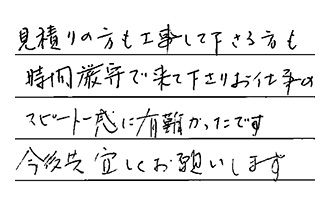 見積りの方も工事して下さる方も
時間厳守で来て下さりお仕事の
スピート一感に有難かったです
今後共宜しくお願いします